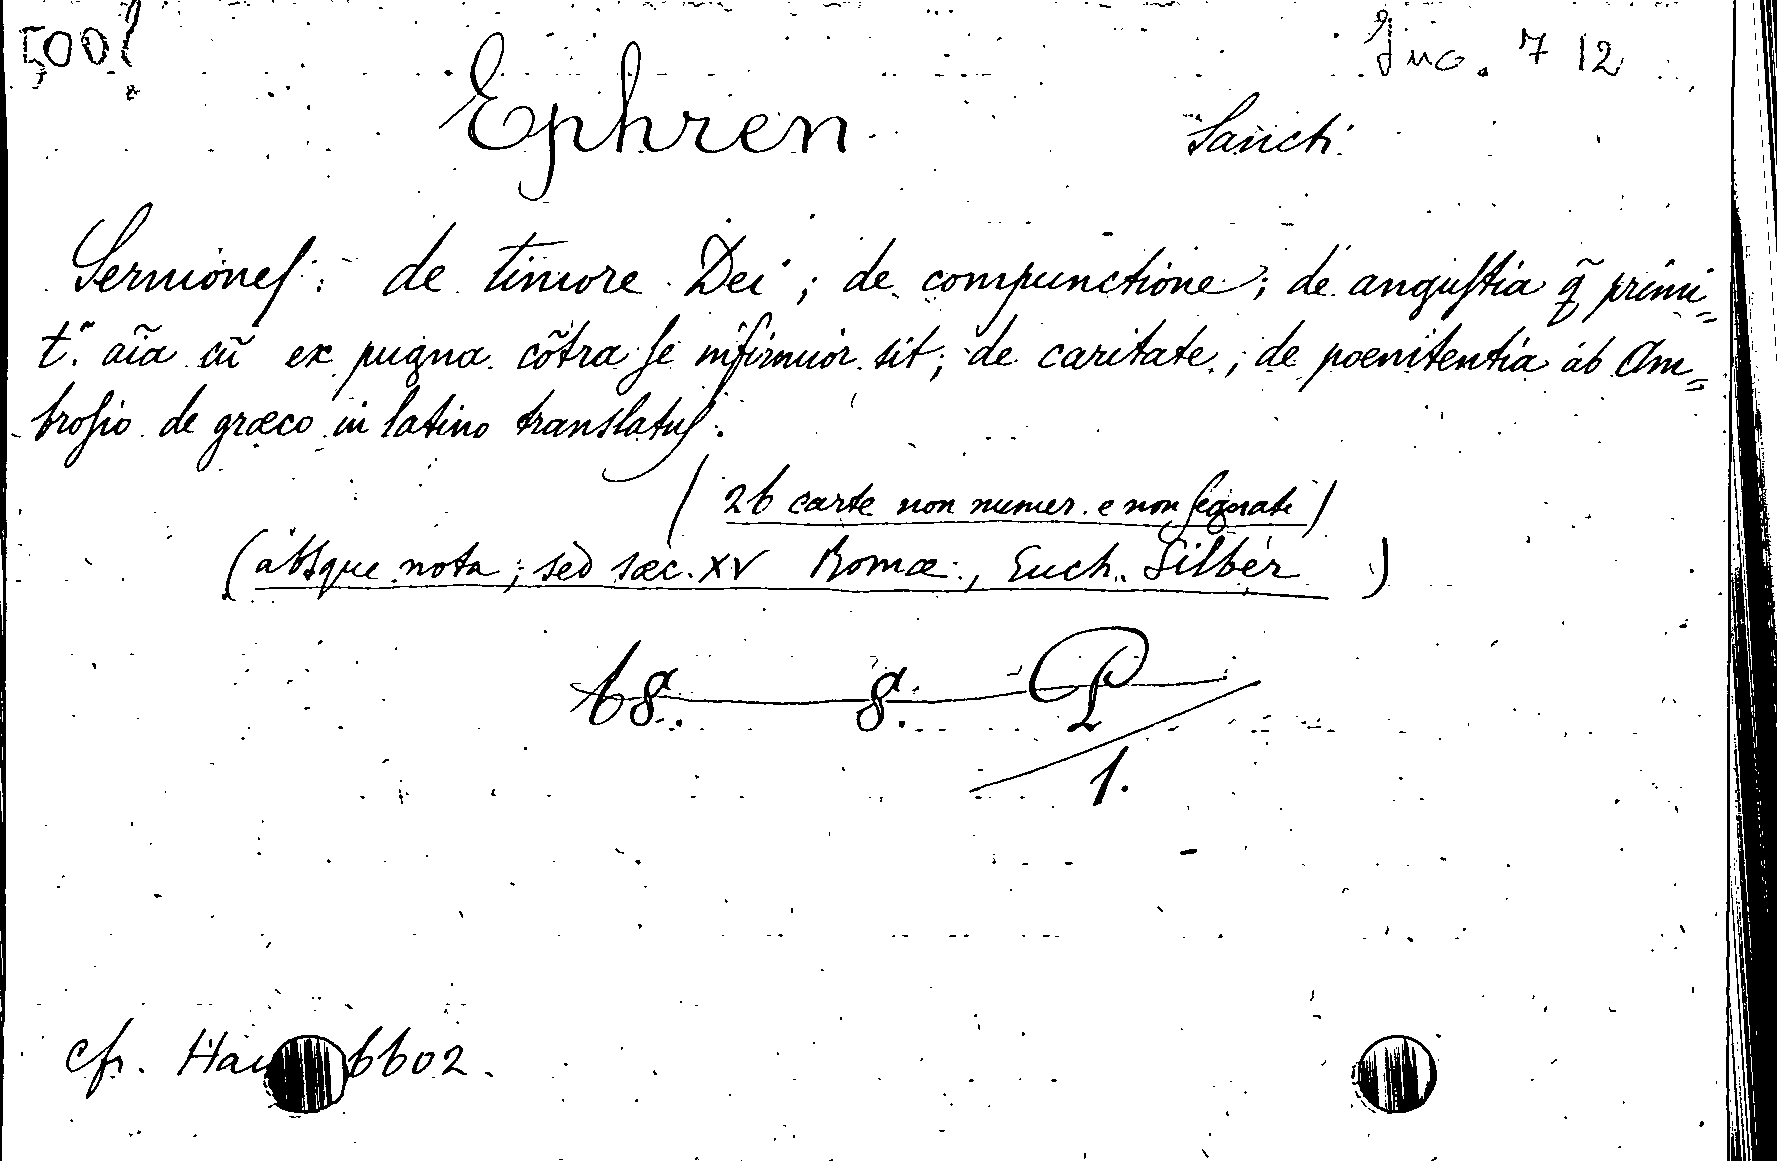 500! Inc. 712
Ephren Sancti
Sermones: de timore Dei; de compunctione; de angustia q̃ primi=
t." aīa cū ex pugna cōtra se infirmior sit; de caritate; de poenitentia ab Am=
brosio de græco in latino translatus.
(26 carte non numer. e non segnate)
(absque nota; sed sæc. XV Romæ, Euch. Silber)
68. 8. P
1.
cfr. Hain 6602.